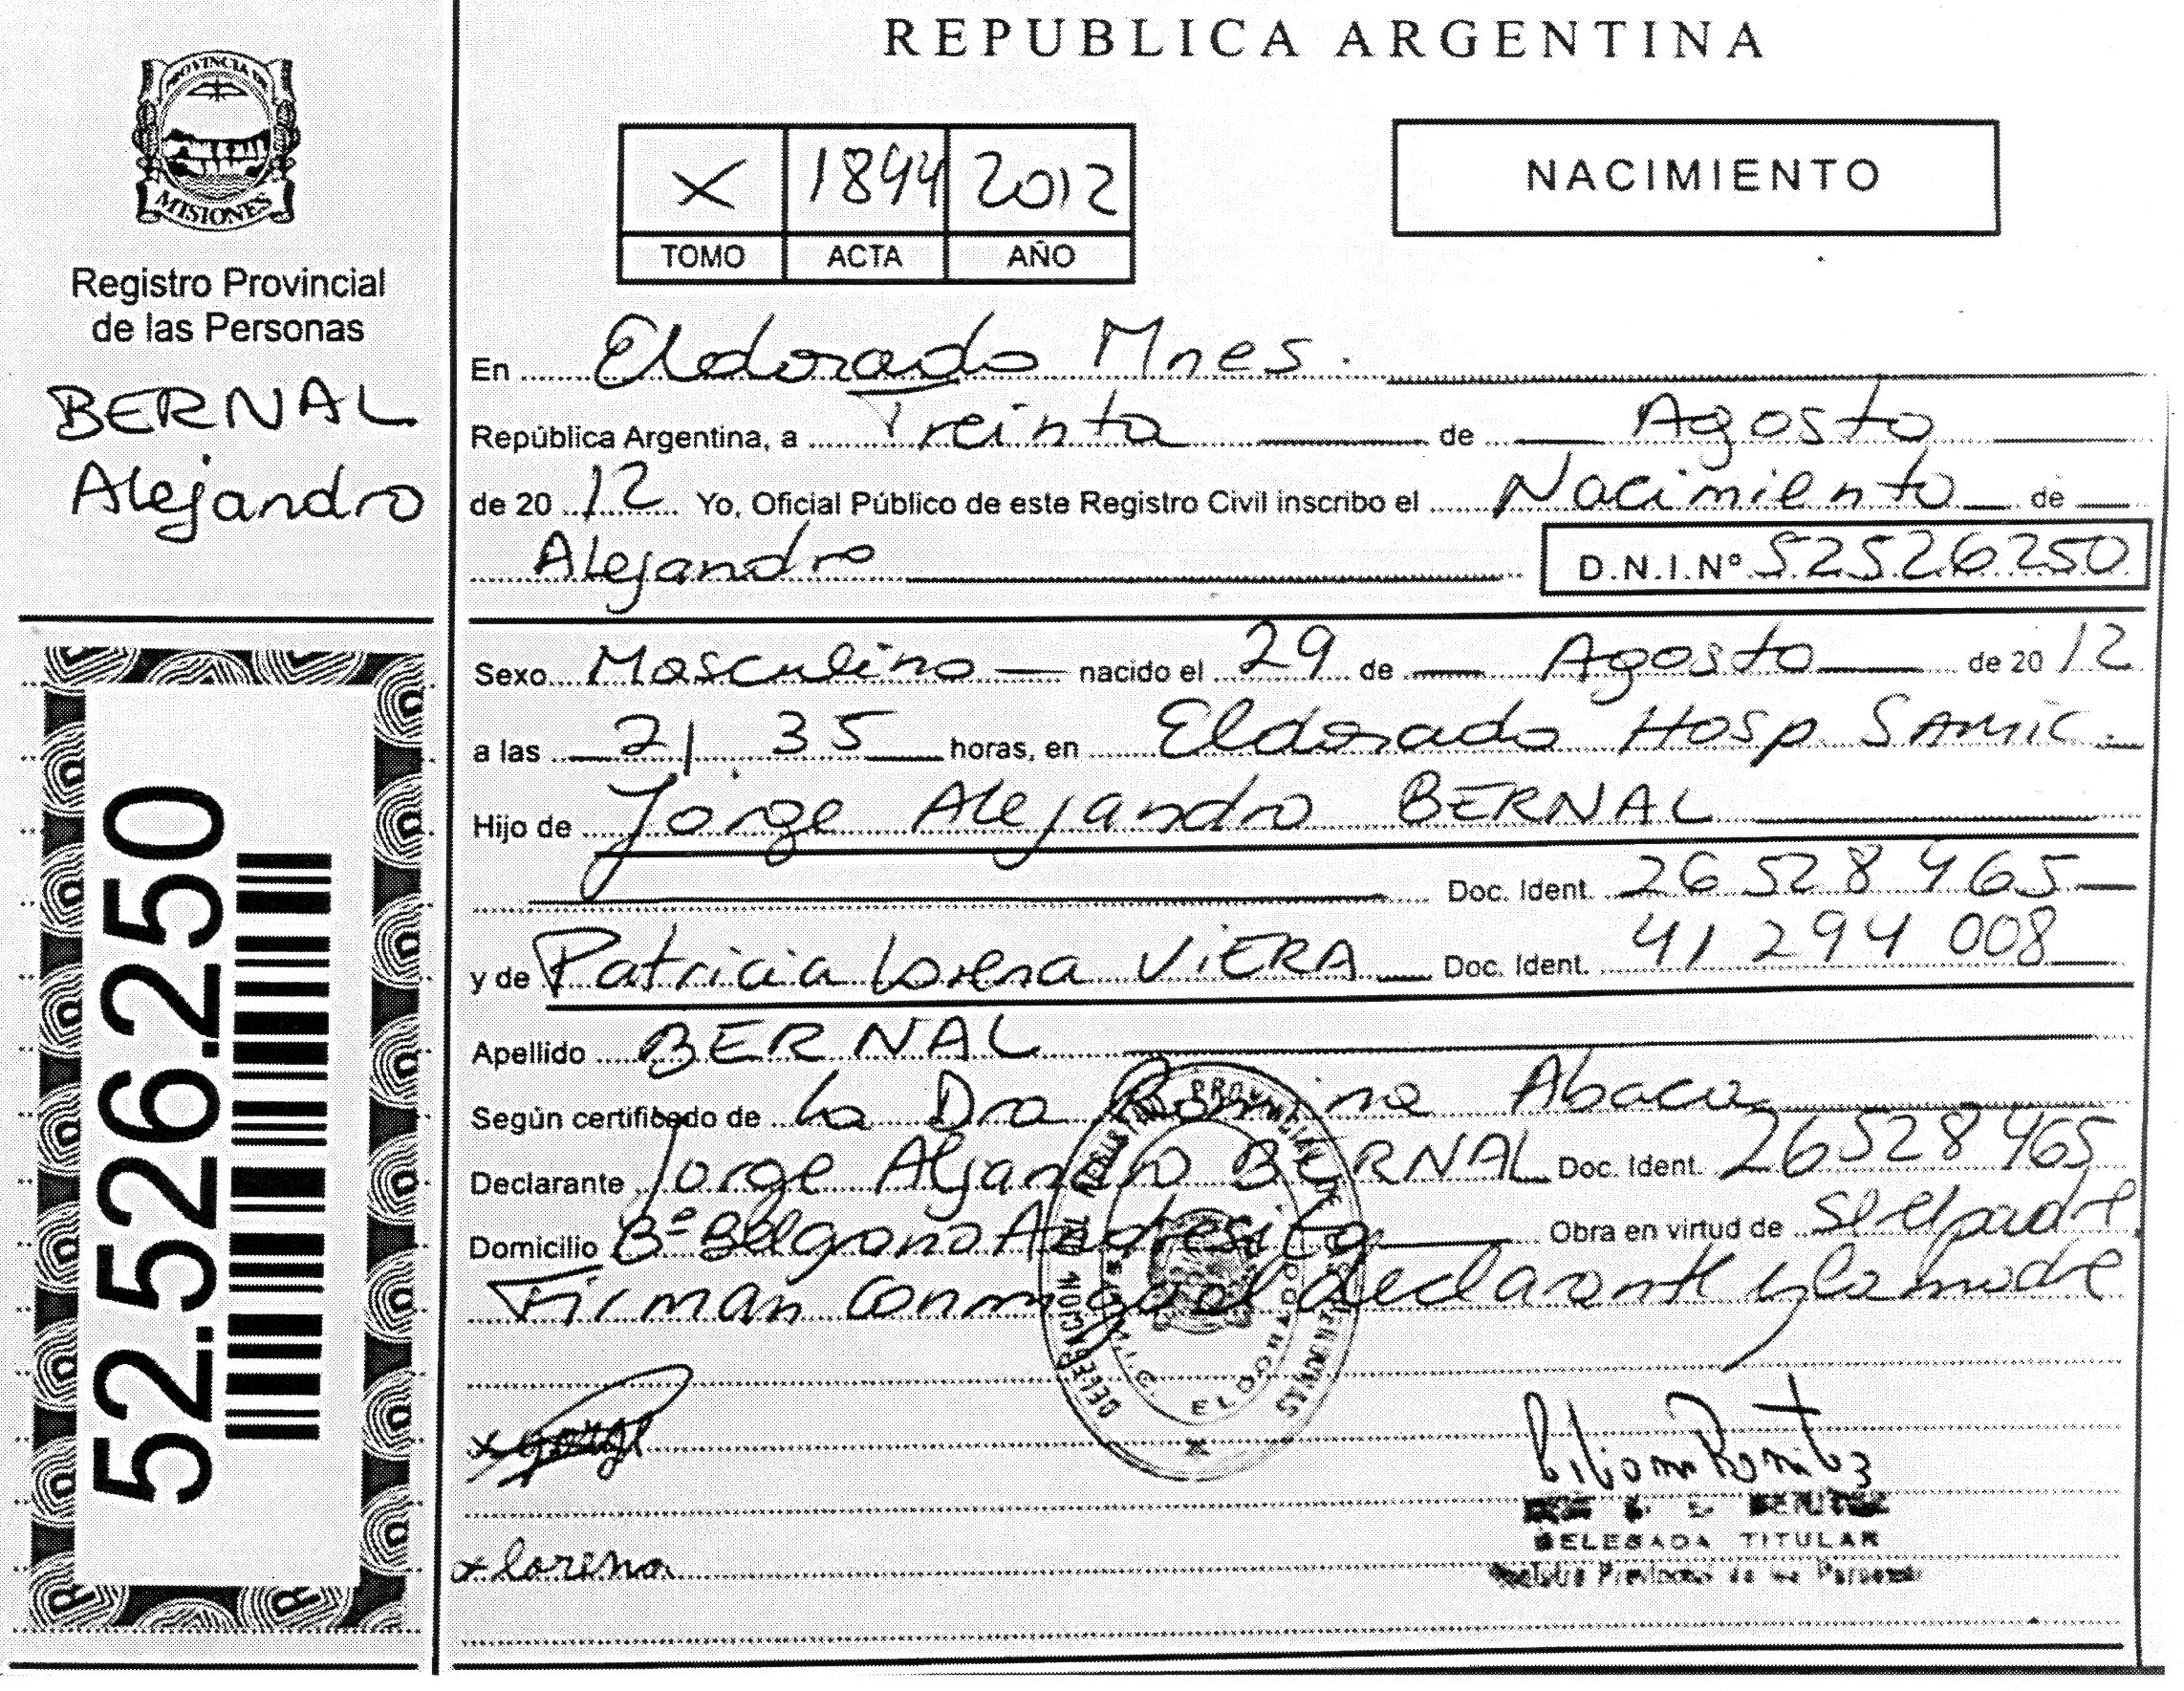 REPUBLICA ARGENTINA
PROVINCIA DE
MISIONES
Registro Provincial
de las Personas
BERNAL
Alejandro
52.526.250
X 1844 2012
TOMO ACTA AÑO
NACIMIENTO
En Eldorado Mnes.
República Argentina, a Treinta de Agosto
de 20 12 Yo, Oficial Público de este Registro Civil inscribo el Nacimiento de
Alejandro D.N.I.Nº 52526250
Sexo Masculino nacido el 29 de Agosto de 20 12
a las 21 35 horas, en Eldorado Hosp. SAMIC.
Hijo de Jorge Alejandro BERNAL
Doc. Ident. 26 528 465
y de Patricia Lorena ViERA Doc. Ident. 41 294 008
Apellido BERNAL
Según certificado de La Dra Romina Abaca
Declarante Jorge Aljandro BERNAL Doc. Ident. 26528465
Domicilio Bº Belgrano Andresito Obra en virtud de se el padre.
Firman conmigo el declarante y la madre
x Jorge
x lorena
DELEGADA TITULAR